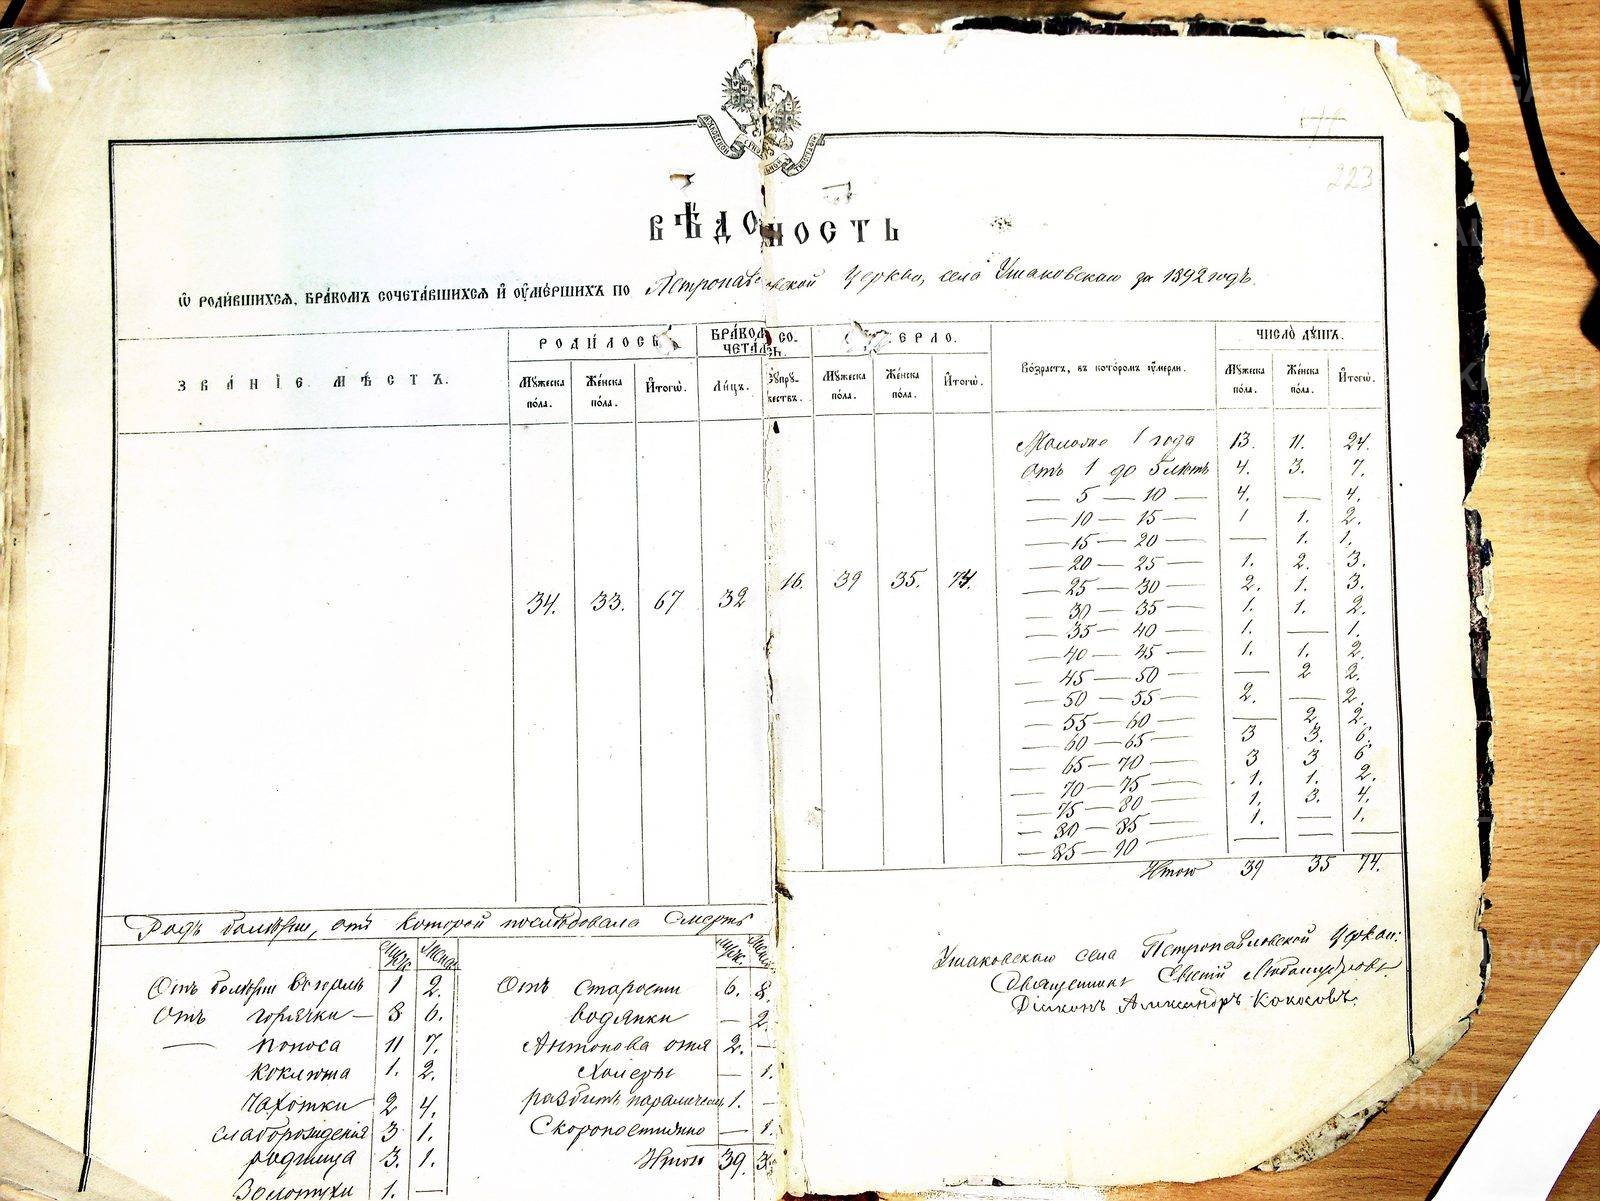 223
ВѢДОМОСТЬ
Ѡ РОДИВШИХСЯ, БРАКОМЪ СОЧЕТАВШИХСЯ И ОУМЕРШИХЪ ПО Петропавловской Церкви, села Ушаковскаго за 1892 годъ.
ЗВАНІЕ МѢСТЪ.
РОДИЛОСЬ
БРАКОМЪ СО-
ЧЕТАЛОСЬ.
ОУМЕРЛО.
Возрастъ, въ которомъ оумерли.
ЧИСЛО ДУШЪ.
Мужеска пола.
Женска пола.
Итогѡ.
Лицъ.
Супружествъ.
Мужеска пола.
Женска пола.
Итогѡ.
Мужеска пола.
Женска пола.
Итогѡ.
34. 33. 67 32 16. 39 35. 74.
Моложе 1 года 13. 11. 24.
Отъ 1 до 5 лѣтъ 4. 3. 7.
— 5 — 10 — 4. — 4.
— 10 — 15 — 1 1. 2.
— 15 — 20 — — 1. 1.
— 20 — 25 — 1. 2. 3.
— 25 — 30 — 2. 1. 3.
— 30 — 35 — 1. 1. 2.
— 35 — 40 — 1. — 1.
— 40 — 45 — 1. 1. 2.
— 45 — 50 — — 2 2.
— 50 — 55 — 2. — 2.
— 55 — 60 — — 2. 2.
— 60 — 65 — 3 3. 6.
— 65 — 70 — 3 3 6
— 70 — 75 — 1. 1. 2.
— 75 — 80 — 1. 3. 4.
— 80 — 85 — 1. — 1.
— 85 — 90 — — —
Итого 39 35 74.
Родъ болѣзни, отъ которой послѣдовала Смерть
Муж. Женс.
Муж. Женс.
Отъ болѣзни въ горлѣ 1 2.
Отъ горячки — 8 6.
— поноса 11 7.
коклюша 1. 2.
чахотки 2 4.
слаборожденія 3 1.
родимца 3. 1.
Золотухи 1. —
Отъ старости 6. 8.
водянки — 2.
Антонова огня 2. —
Холеры — 1.
разбитъ параличемъ 1. —
Скоропостижно — 1.
Итого 39. 35
Ушаковскаго села Петропавловской Церкви:
Священникъ Евсевій Любомудровъ
Діаконъ Александръ Кокосовъ.